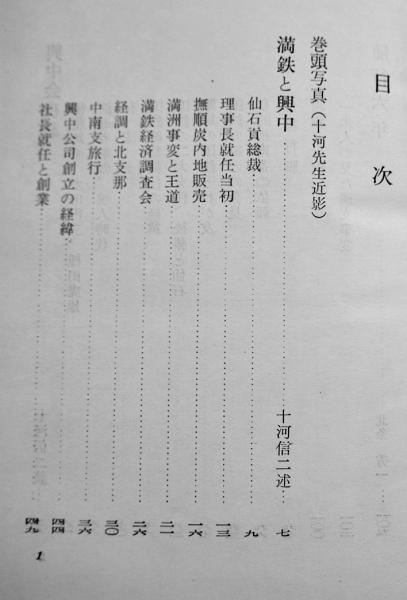 目次
巻頭写真（十河先生近影）
満鉄と興中……十河信二述……七
仙石貢総裁……九
理事長就任当初……一三
撫順炭内地販売……一六
満洲事変と王道……二一
満鉄経済調査会……二六
経調と北支那……三〇
中南支旅行……三六
興中公司創立の経緯……四四
社長就任と創業……四九
1